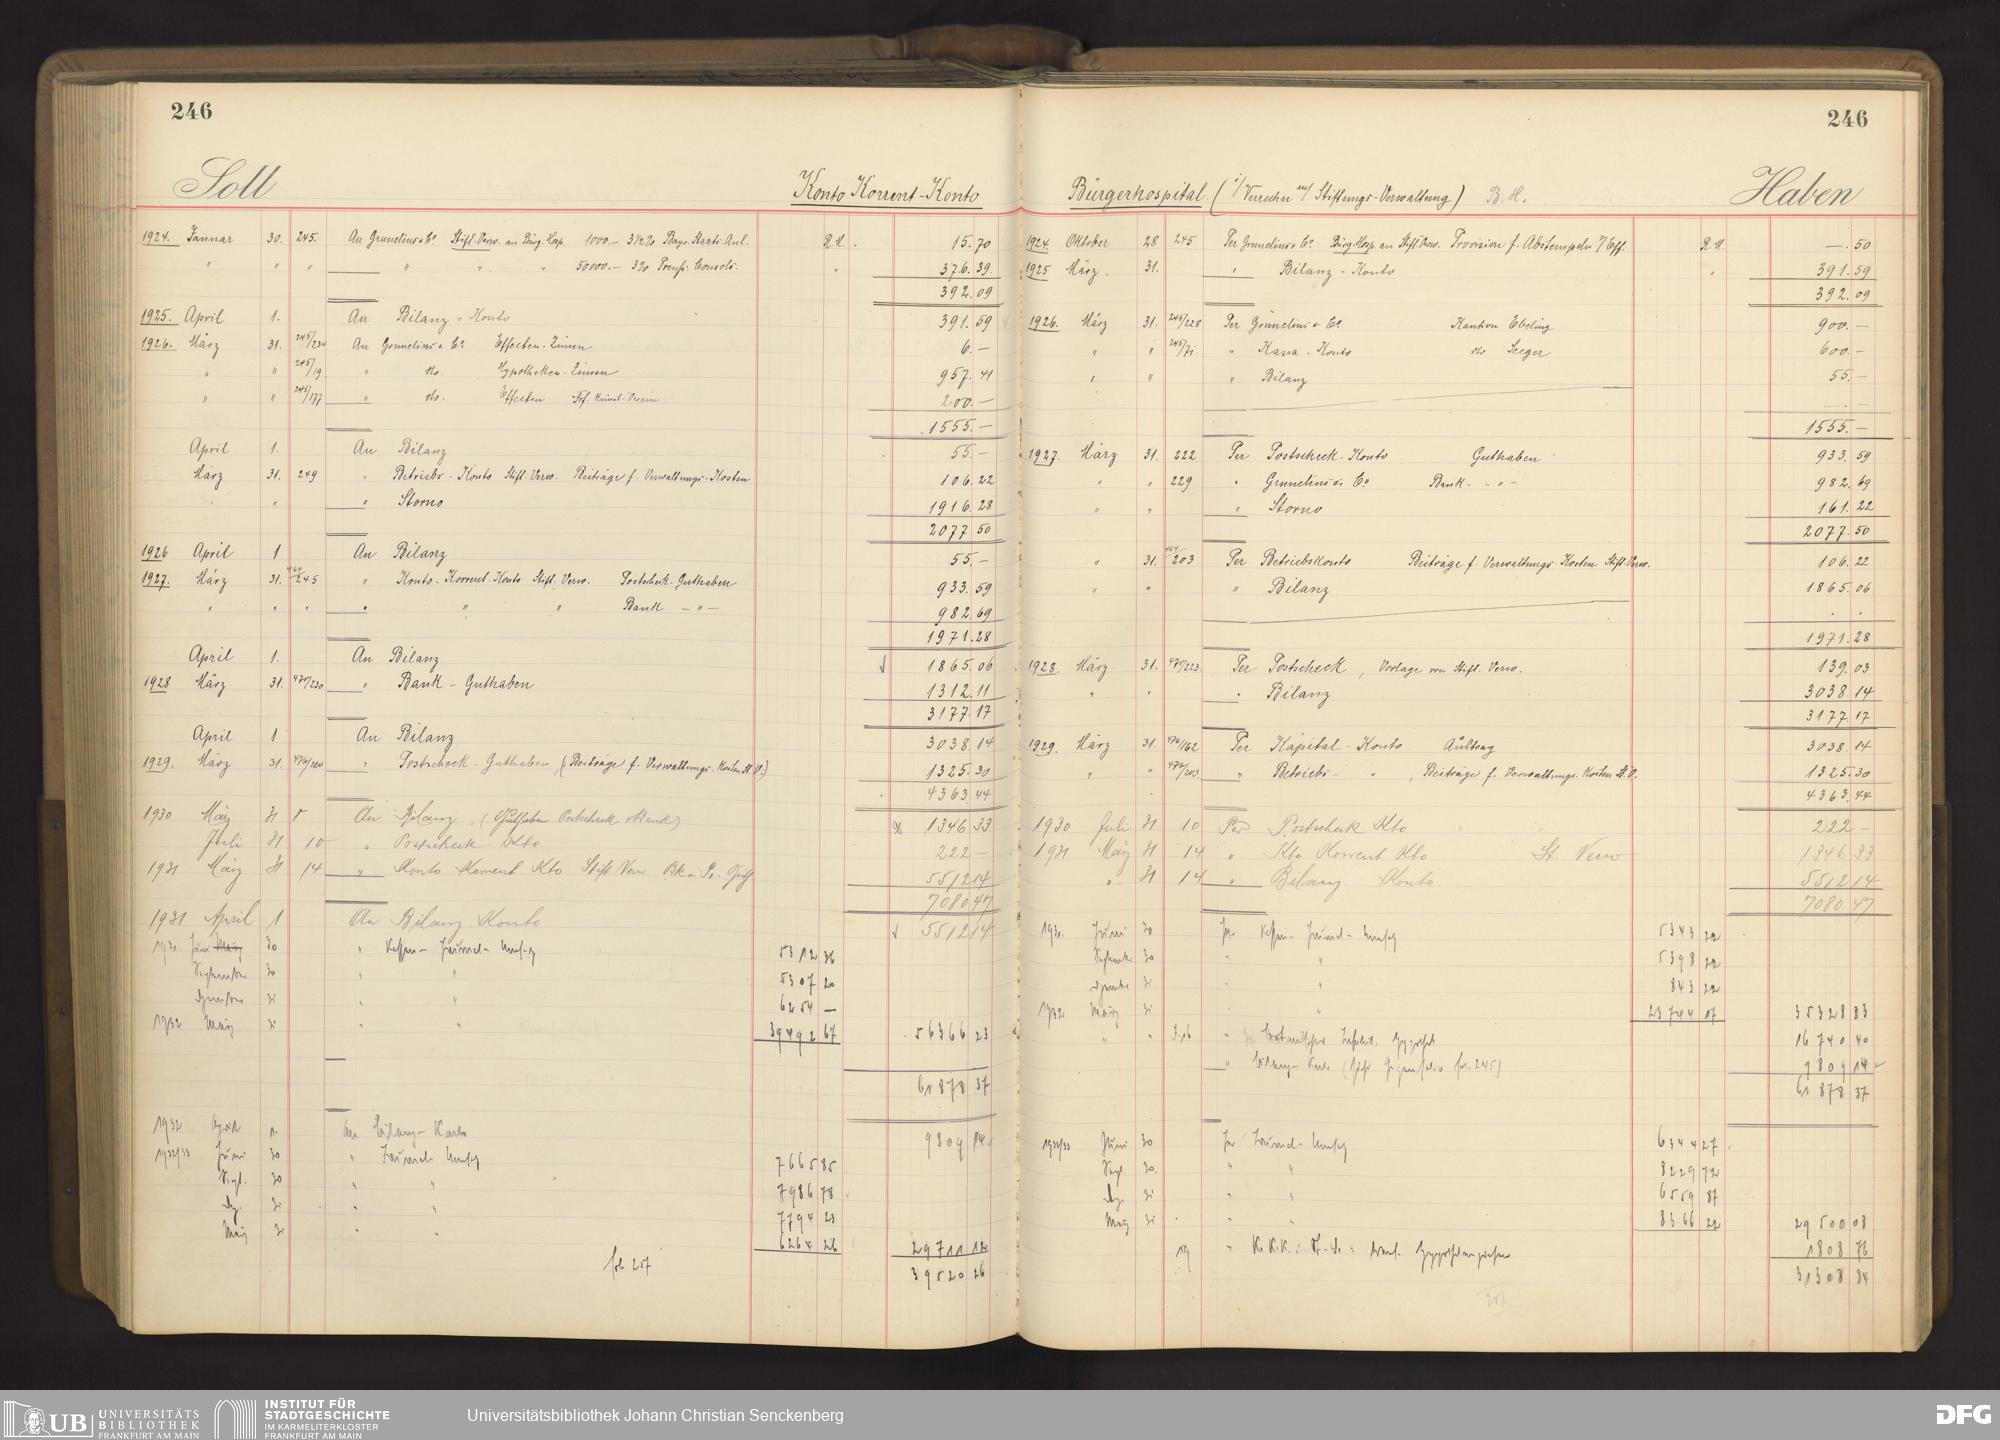 246
Soll
Konto Korrent-Konto
1924. Januar 30. 245. An Grunelius & Co. Stift.Verw. an Bürg.Hosp. 1000.- 3½% Bayr. Staats-Anl. R.M. 15.70
" " " " " " 50000.- 3% Preuß. Consols. " 376.39.
392.09
1925. April 1. An Bilanz-Konto 391.59
1926. März 31. 245/234 An Grunelius & Co. Effecten-Zinsen 6.-
" " 245/19. " dto. Hypotheken-Zinsen 957.41
" " 245/177 " dto. Effecten 200.-
1555.-
April 1. An Bilanz 55.-
März 31. 249 " Betriebs-Konto Stift.Verw. Beiträge f. Verwaltungs-Kosten 106.22
" " " Storno 1916.28
2077.50
1926 April 1 An Bilanz 55.-
1927. März 31. 464/245 " Konto-Korrent-Konto Stift.Verw. Postscheck-Guthaben 933.59
" " " " " " Bank -"- 982.69
1971.28
April 1. An Bilanz 1865.06
1928 März 31. 471/230 " Bank-Guthaben 1312.11
3177.17
April 1 An Bilanz 3038.14
1929. März 31. 476/220 " Postscheck-Guthaben, (Beiträge f. Verwaltungs-Kosten St.V.) 1325.30
4363.44
1930 März 31 5 An Bilanz, (Guthaben Postscheck & Bank) 1346 33
Juli 31 10 " Postscheck Kto 222 -
1931 März 31 14 " Konto Korrent Kto Stift Verw 5512 14
7080 47
1931 April 1 An Bilanz Konto 5512 14
1931. Juni 30 " Kassen-Journal-Umsatz 5312 36
September 30 " " 5307 20
Dezember 31 " " 6254 -
1932 März 31 " " 39492 67 56366 23
61878 37
1932 April 1. An Bilanz-Konto 9809 14
1932/33 Juni 30 " Journal-Umsatz 7665 85
Sept. 30 " " 7986 78
Dez. 31 " " 7794 23
März 31 " " 6264 26 29711 12
fol. 257 39520 26
246
Bürgerhospital. (i/Verrechn. m/ Stiftungs-Verwaltung) B.H.
Haben
1924. Oktober 28 245 Per Grunelius & Co. Bürg.Hosp. an Stift.Verw. Provision f. Abstempeln v/Eff. R.M. -.50
1925 März. 31. " Bilanz-Konto " 391.59
392.09
1926. März 31. 245/228 Per Grunelius & Co. Kaution Ebeling 900.-
" " 245/71. " Kassa-Konto dto Seeger 600.-
" " " Bilanz 55.-
1555.-
1927. März 31. 222 Per Postscheck-Konto Guthaben 933.59
" " 229 " Grunelius & Co Bank -"- 982.69
" " " Storno 161.22
2077.50
" 31. 464/203 Per Betriebskonto Beiträge f. Verwaltungs-Kosten Stift.Verw. 106.22
" " " Bilanz 1865.06
1971.28
1928. März 31. 471/223. Per Postscheck, Vorlage von Stift. Verw. 139.03
" " " Bilanz 3038.14
3177.17
1929. März 31. 476/162 Per Kapital-Konto Austrag 3038.14
" " 476/203 " Betriebs- ", Beiträge f. Verwaltungs-Kosten St.V. 1325.30
4363.44
1930 Juli 31 10 Per Postscheck Kto 222 -
1931 März 31 14 " Kto Korrent Kto St. Verw 1346 33
" 31 14 " Bilanz Konto 5512 14
7080 47
1931. Juni 30 Per Kassen-Journal-Umsatz 5343 22
September 30 " " 5398 22
Dezember 31 " " 843 22
1932 März 31 " " 23744 17 35328 83
" " " Botanisches Institut. Hypothek 16740 40
" Bilanz-Konto (siehe Gegensaldo fol. 245) 9809 14
61878 37
1932/33 Juni 30 Per Journal-Umsatz 6344 27
Sept. 30. " " 8229 72
Dez. 31 " " 6559 87
März 31 " " 8366 22 29500 08
19 " K.K.K.: St.-V.: Hypothekenzinsen 1808 76
31308 84
UB UNIVERSITÄTS BIBLIOTHEK FRANKFURT AM MAIN
INSTITUT FÜR STADTGESCHICHTE IM KARMELITERKLOSTER FRANKFURT AM MAIN
Universitätsbibliothek Johann Christian Senckenberg
DFG